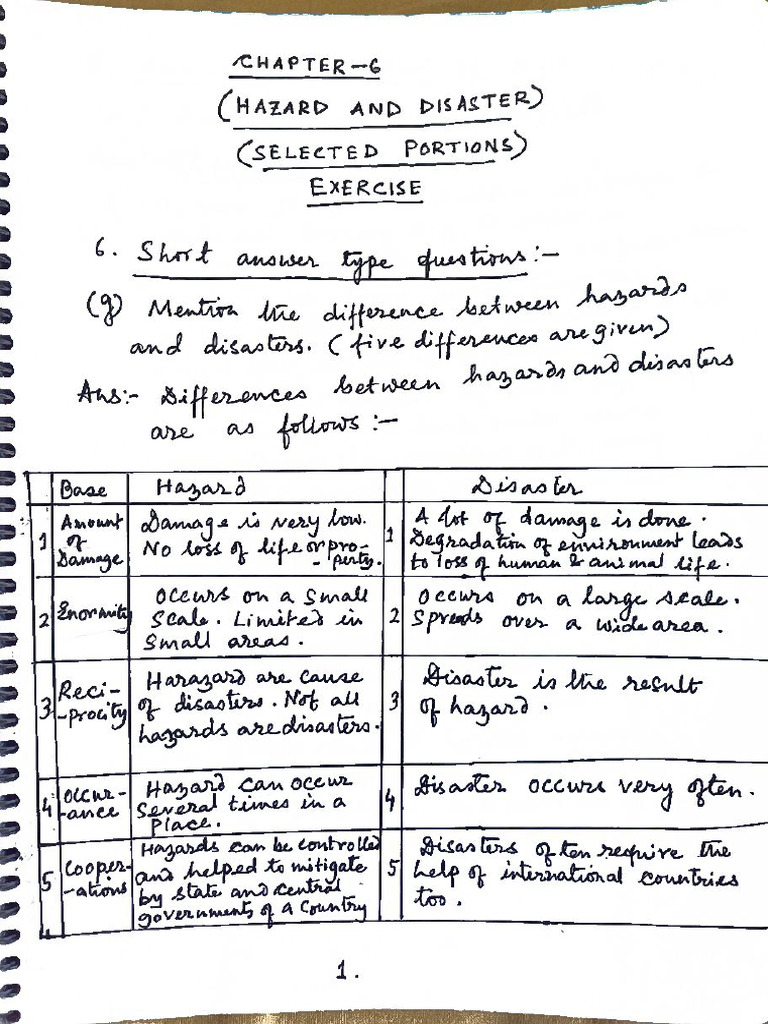 CHAPTER-6
(HAZARD AND DISASTER)
(SELECTED PORTIONS)
EXERCISE
6. Short answer type questions:-
(g) Mention the difference between hazards
and disasters. (five differences are given)
Ans:- Differences between hazards and disasters
are as follows:-
Base Hazard Disaster
1 Amount of Damage
Damage is very low.
No loss of life or pro-
-perty.
1 A lot of damage is done.
Degradation of environment leads
to loss of human & animal life.
2 Enormity
Occurs on a small
scale. Limited in
small areas.
2 Occurs on a large scale.
Spreads over a wide area.
3 Reci-
-procity
Harazard are cause
of disasters. Not all
hazards are disasters.
3 Disaster is the result
of hazard.
4 Occur-
-ance
Hazard can occur
several times in a
place.
4 Disaster occurs very often.
5 Cooper-
-ations
Hazards can be controlled
and helped to mitigate
by state and central
governments of a country
5 Disasters often require the
help of international countries
too.
1.